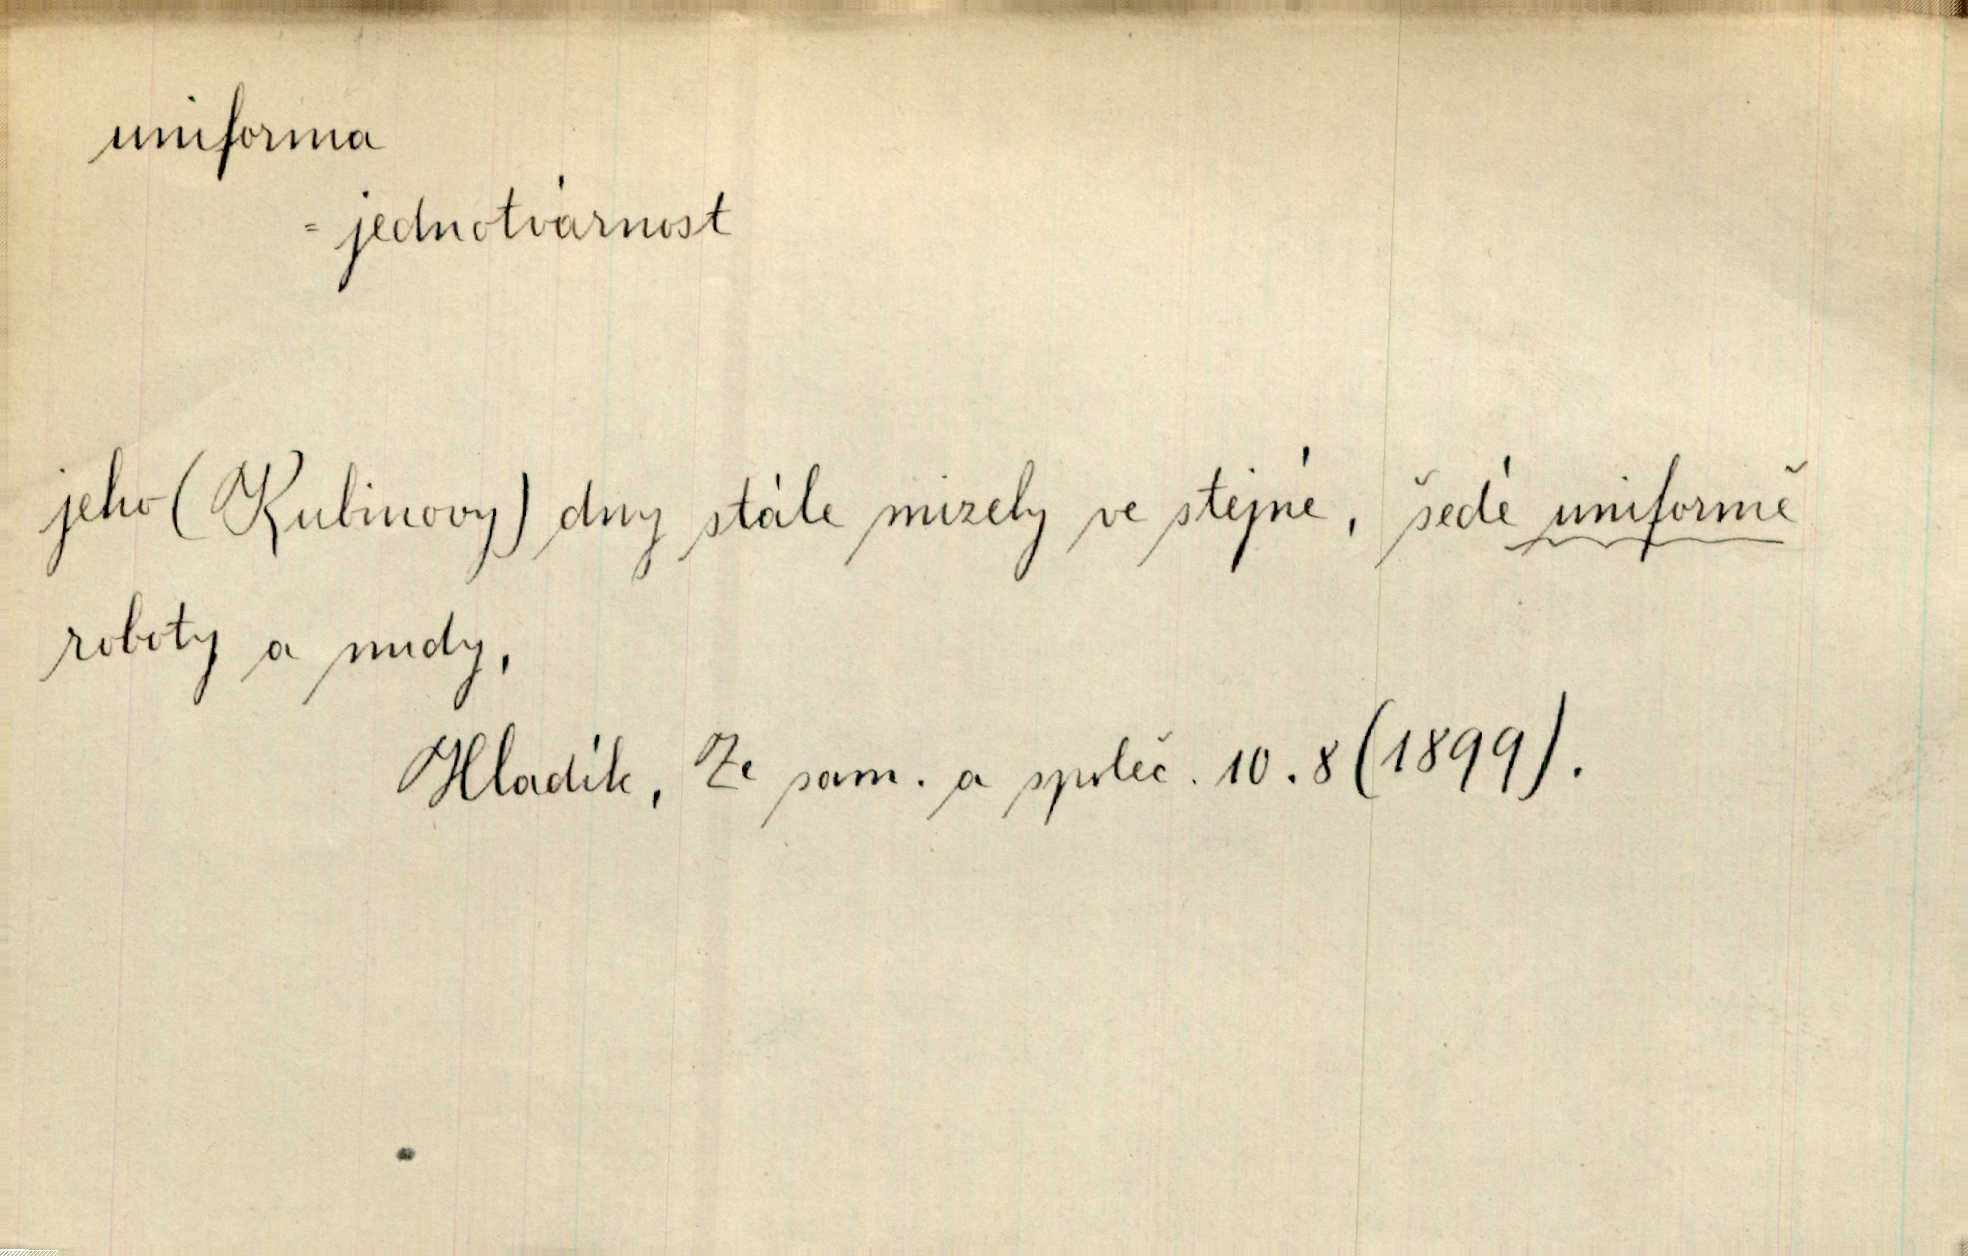 uniforma
= jednotvárnost
jeho (Kubinovy) dny stále mizely ve stejné, šedé uniformě
roboty a nudy,
Hladík, Ze sam. a společ. 10.8 (1899).